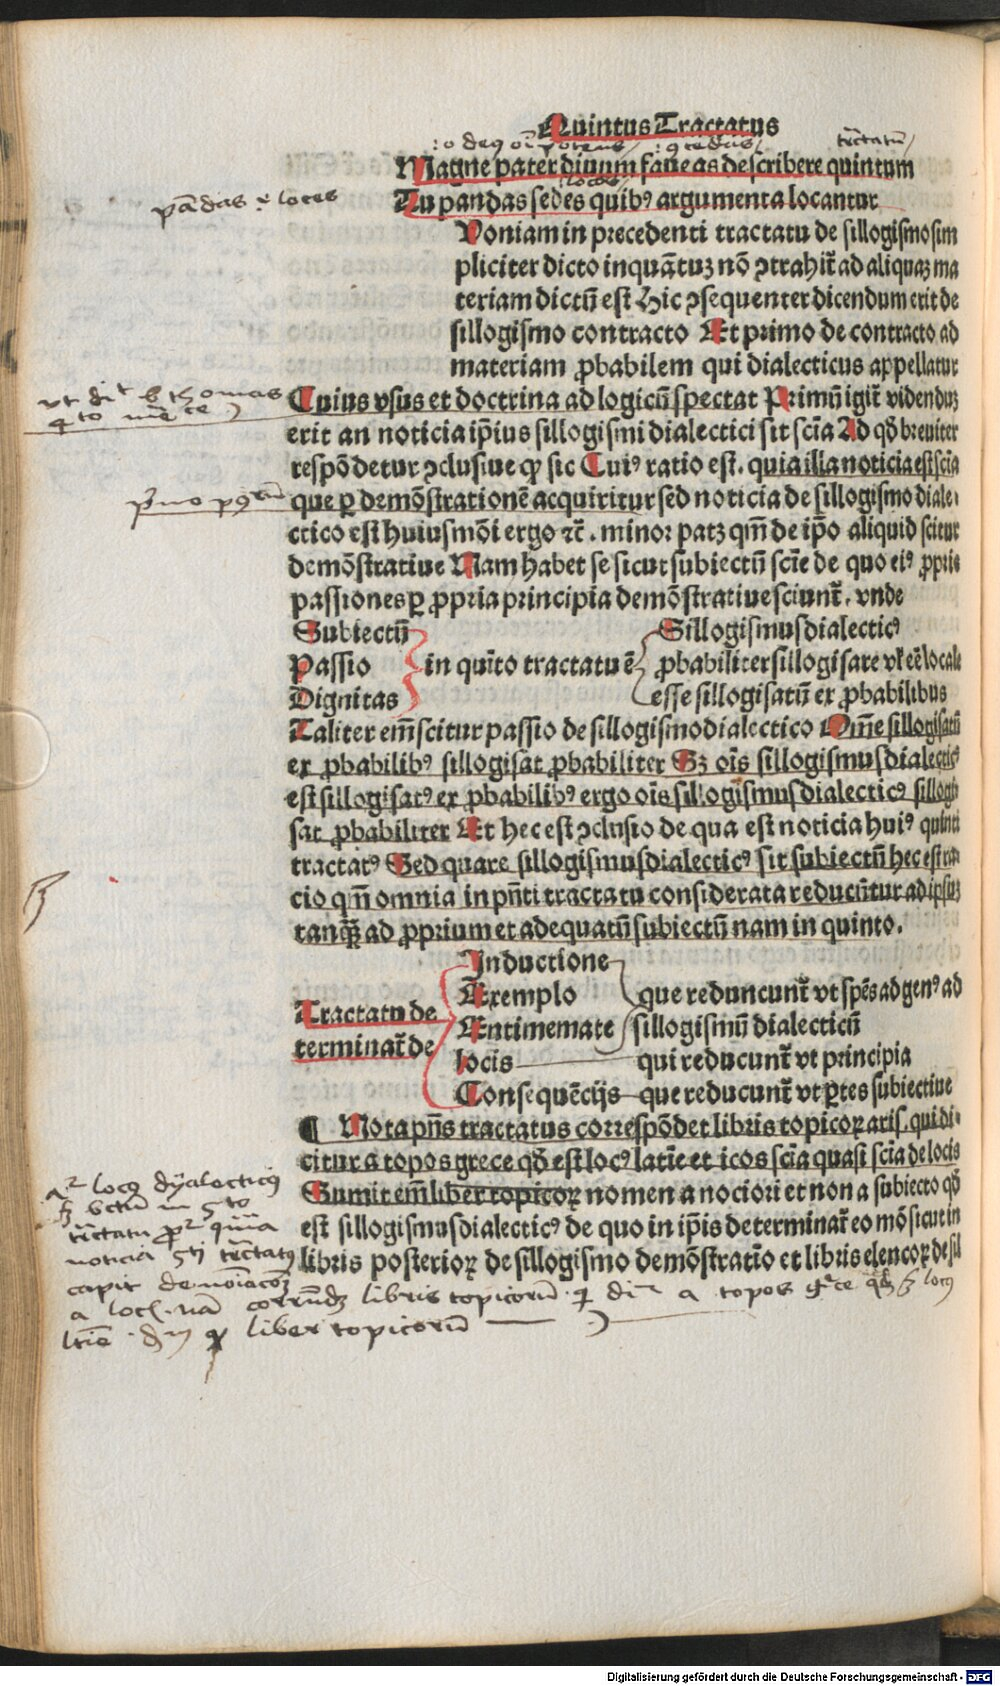 Quintus Tractatus
Magne pater diuum faueas describere quintum
Tu pandas sedes quibꝰ argumenta locantur
Quoniam in precedenti tractatu de sillogismo sim
pliciter dicto inquātuꝫ nō ꝯtrahit᷑ ad aliquaꝫ ma
teriam dictū est Hic ꝯsequenter dicendum erit de
sillogismo contracto Et primo de contracto ad
materiam ꝓbabilem qui dialecticus appellatur
Cuius vsus et doctrina ad logicū spectat Primū igit᷑ videnduꝫ
erit an noticia ip̄ius sillogismi dialectici sit scīa Ad qd̄ breuiter
respōdetur ꝯclusiue ꝙ sic Cuiꝰ ratio est. quia illa noticia est scīa
que ꝑ demōstrationē acquiritur sed noticia de sillogismo diale-
ctico est huiusmōi ergo ⁊c̄. minor patꝫ qm̄ de ip̄o aliquid scitur
demōstratiue Nam habet se sicut subiectū scīe de quo eiꝰ ꝓprie
passiones ꝑ ꝓpria principia demōstratiue sciunt᷑. vnde
Subiectū
Passio
Dignitas
in quīto tractatu ē
Sillogismus dialecticꝰ
ꝓbabiliter sillogisare vl̓ eē locale
esse sillogisatū ex ꝓbabilibus
Taliter em̄ scitur passio de sillogismo dialectico Om̄e sillogisatū
ex ꝓbabilibꝰ sillogisat ꝓbabiliter Sꝫ oīs sillogismus dialecticꝰ
est sillogisatꝰ ex ꝓbabilibꝰ ergo oīs sillogismus dialecticꝰ sillogi
sat ꝓbabiliter Et hec est ꝯclusio de qua est noticia huiꝰ quinti
tractatꝰ Sed quare sillogismus dialecticꝰ sit subiectū hec est ra
cio qm̄ omnia in pn̄ti tractatu considerata reducūtur ad ipsuꝫ
tanq̄ꝫ ad ꝓprium et adequatū subiectū nam in quinto.
Tractatu de
terminat᷑ de
Inductione
Exemplo
Entimemate
locis
Consequēcijs
que reduncunt᷑ vt spēs ad genꝰ ad
sillogismū dialecticū
qui reducunt᷑ vt principia
que reducunt᷑ vt ꝑtes subiectiue
¶ Nota pn̄s tractatus correspōdet libris topicoꝝ aris. qui di-
citur a topos grece qd̄ est locꝰ latīe et icos scīa quasi scīa de locis
Sumit em̄ liber topicoꝝ nomen a nociori et non a subiecto qd̄
est sillogismus dialecticꝰ de quo in ip̄is determinat᷑ eo mō sicut in
libris posterioꝝ de sillogismo demōstratīo et libris elencoꝝ de sil
pādas ⁊ loces
vt dit b thomas
tractatū
locꝰ dyalecticꝰ
noticia 5ti tractatꝰ
capit denoīacōeꝫ
libris topicorū
a topos
liber topicorū
Digitalisierung gefördert durch die Deutsche Forschungsgemeinschaft - DFG